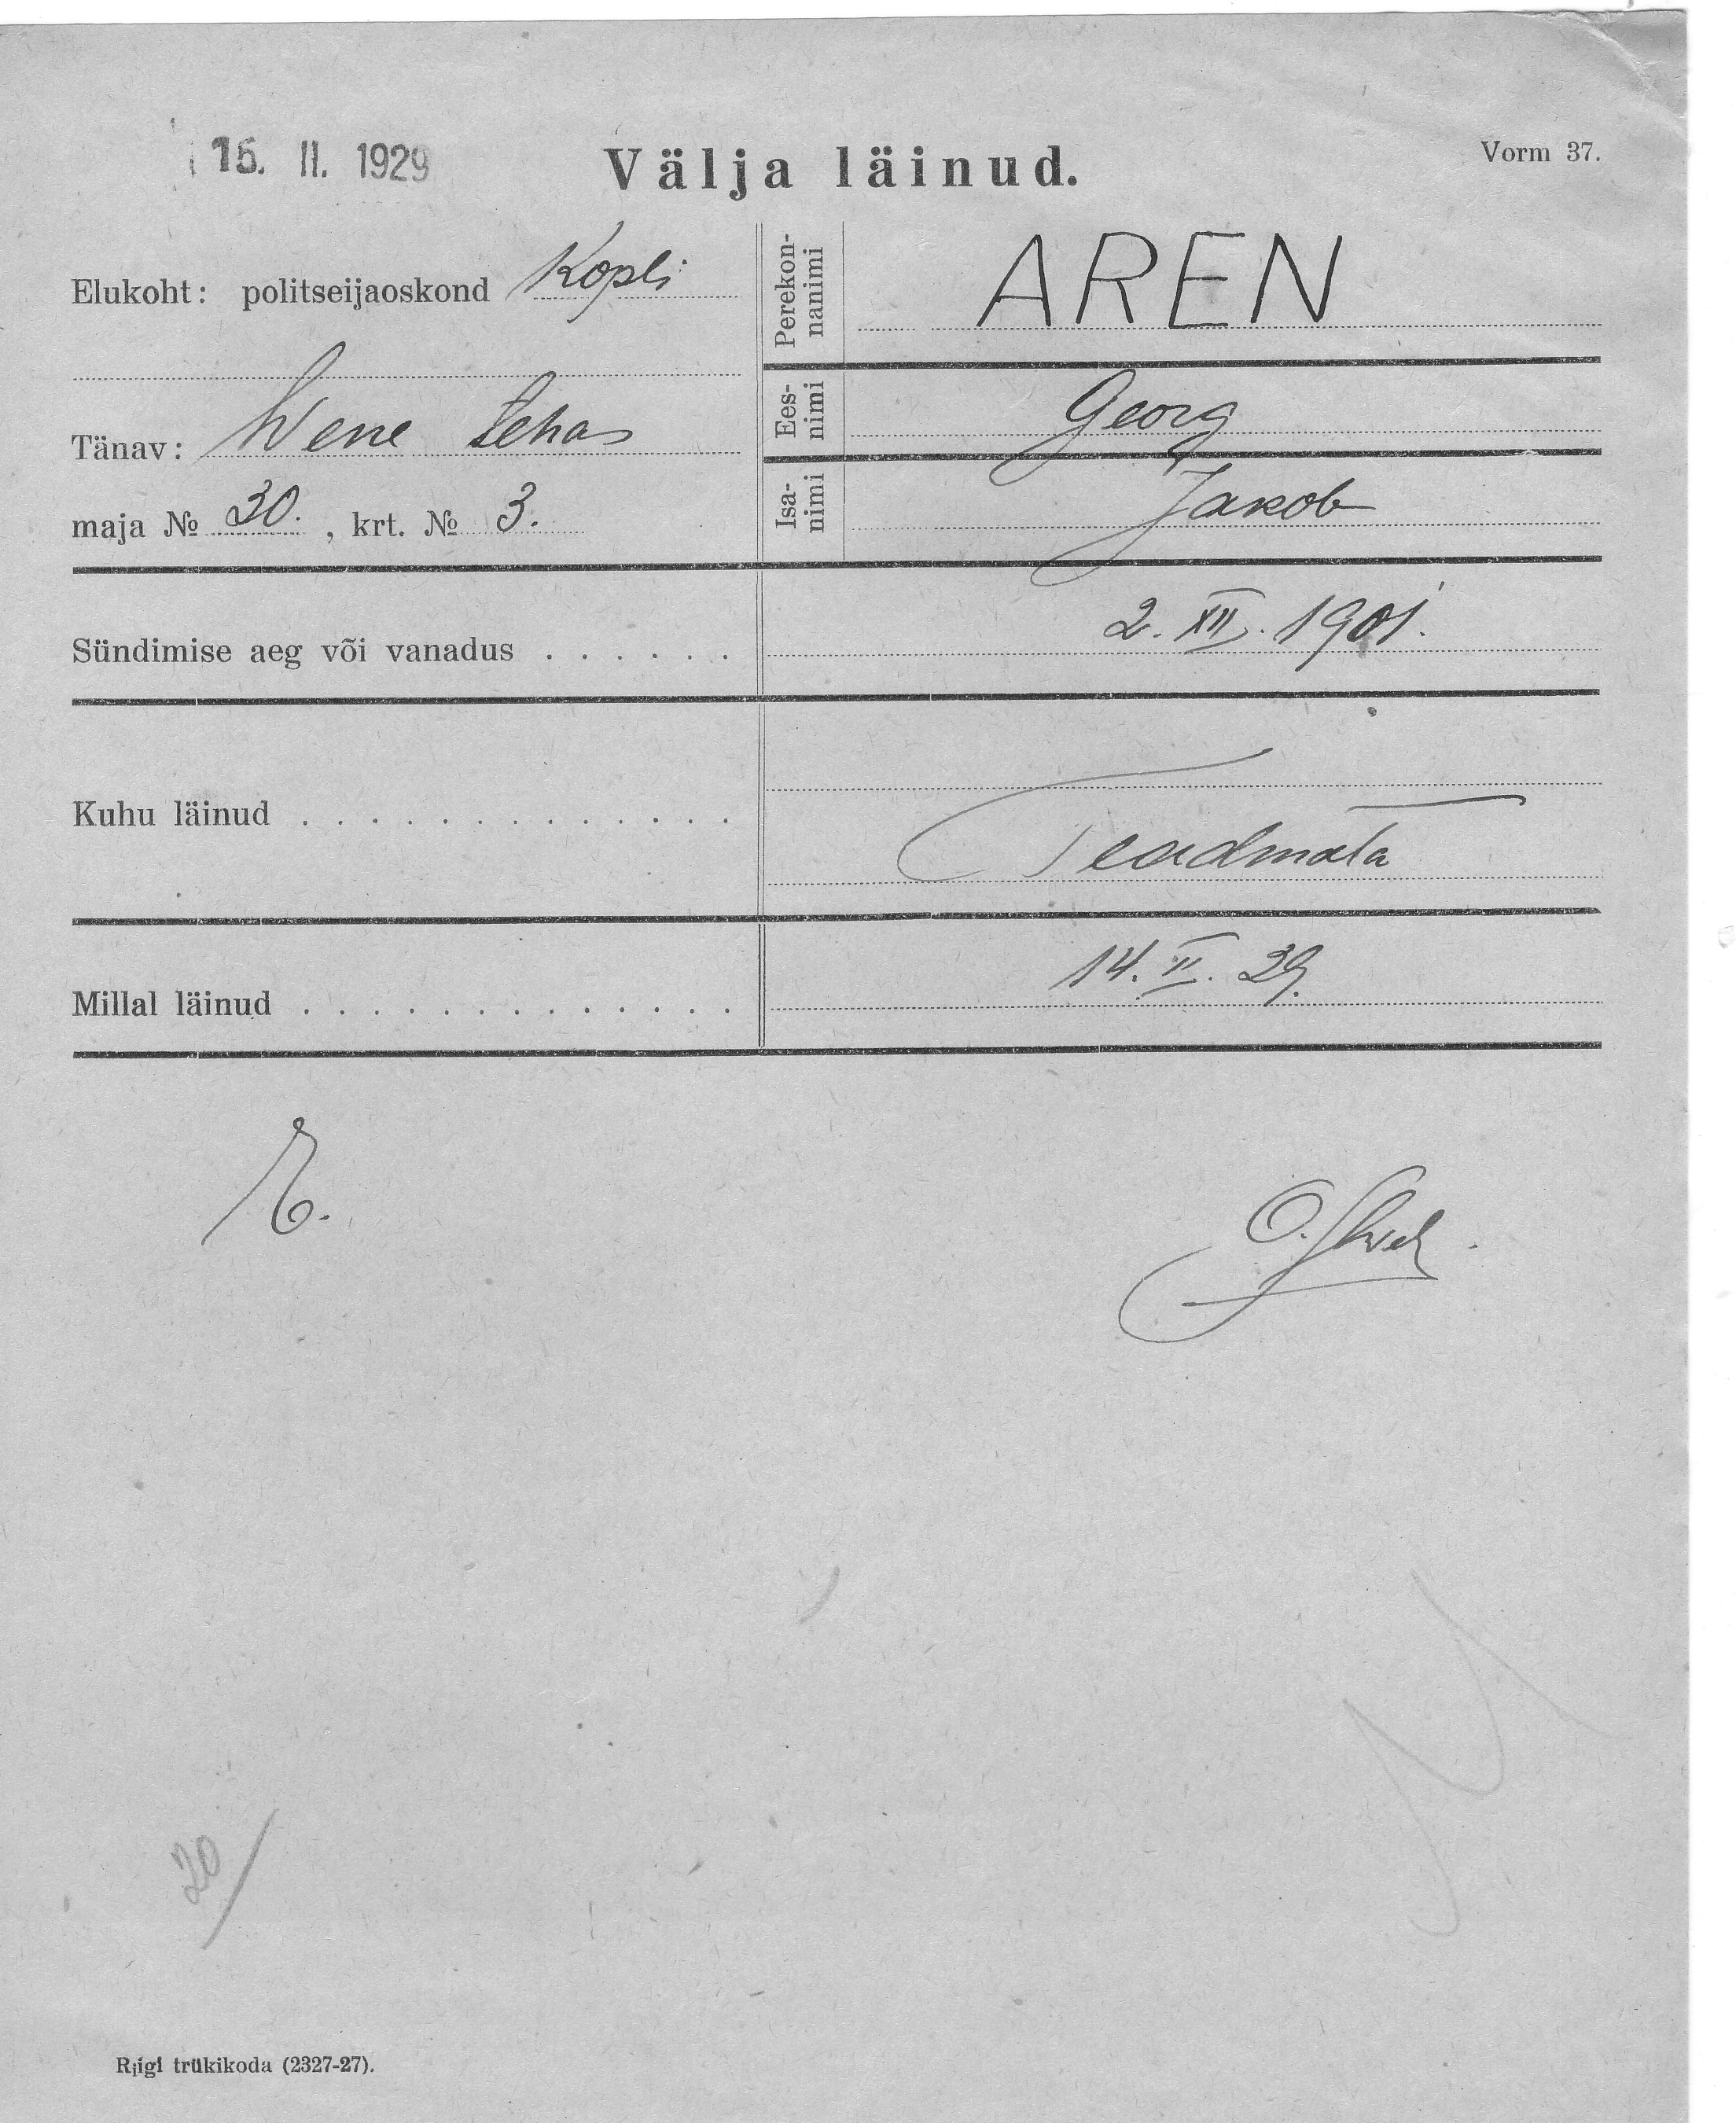 15. II. 1929
Välja läinud.
Vorm 37.
Elukoht: politseijaoskond Kopli
Tänav: Wene tehas
maja № 30. , krt. № 3.
Perekon-
nanimi
AREN
Ees-
nimi
Georg
Isa-
nimi
Jakob
Sündimise aeg või vanadus . . . . . . 2. XII. 1901.
Kuhu läinud . . . . . . . . . . . . . Teadmata
Millal läinud . . . . . . . . . . . . . 14. II. 29.
O.
20/
Riigi trükikoda (2327-27).